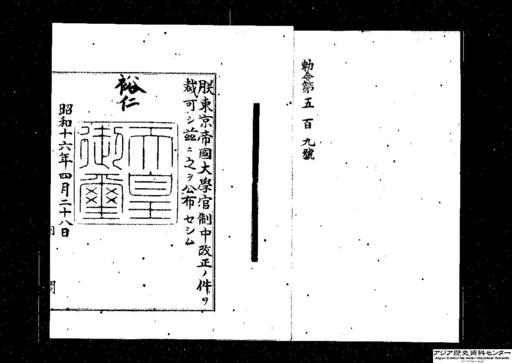 勅令第五百九號
朕東京帝國大學官制中改正ノ件ヲ
裁可シ茲ニ之ヲ公布セシム
裕仁
天皇御璽
昭和十六年四月二十八日
アジア歴史資料センター
Japan Center for Asian Historical Records